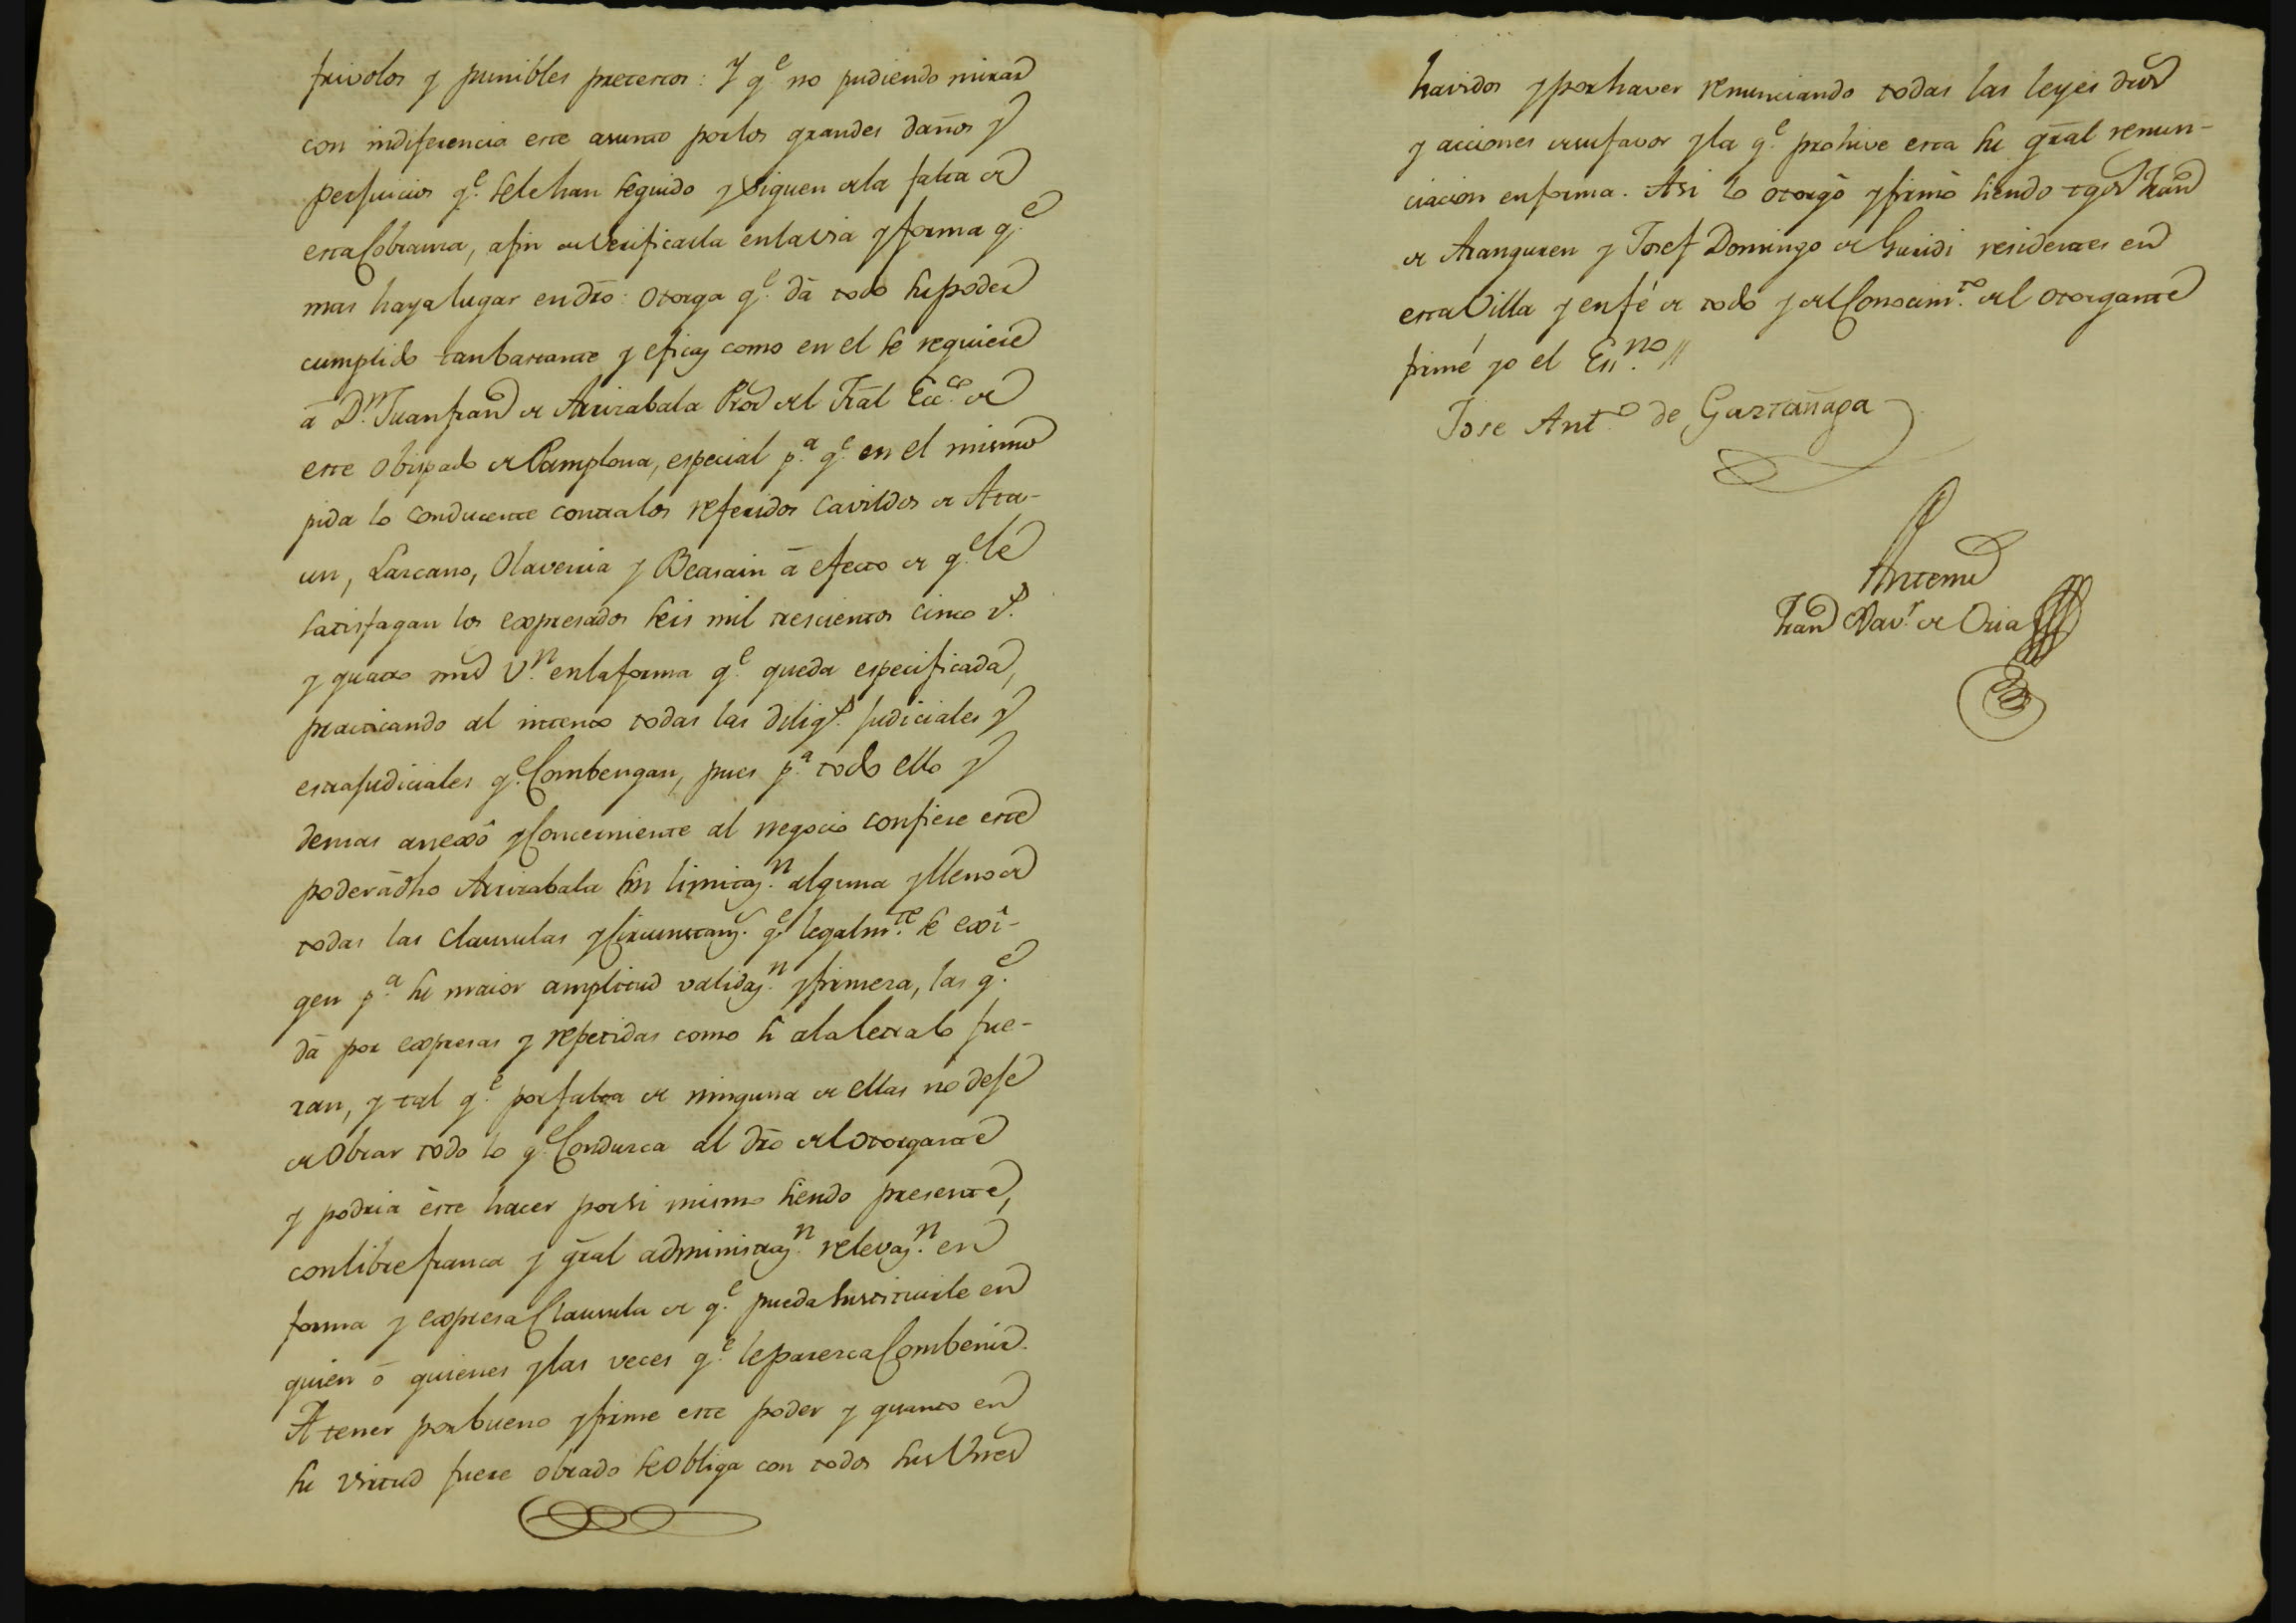 frivolos y punibles pretextos: Y q.e no pudiendo mirar
con indiferencia este asunto por los grandes daños y
perjuicios q.e se le han seguido y siguen de la falta de
esta Cobranza, a fin de Verificarla en la via y forma q.e
mas haya lugar en dro: otorga q.e dá todo su poder
cumplido tan bastante y eficaz como en el se requiere
á D.n Juan fran.co de Arrizabala Pror del Tral Ecc.co de
este Obispado de Pamplona, especial p.a q.e en el mismo
pida lo conducente contra los referidos Cavildos de Ata-
un, Lazcano, Olaverria y Beasain á efecto de q.e le
satisfagan los expresados seis mil trescientos cinco r.s
y quatro mrs V.n en la forma q.e queda especificada,
practicando al intento todas las dilig.s judiciales y
estrajudiciales q.e Combengan, pues p.a todo ello y
demas anexô y Concerniente al negocio confiere este
poder á dho Arrizabala sin limitaz.n alguna y lleno de
todas las Clausulas y Circunstanz.s q.e legalm.te se exî-
gen p.a su maior amplitud validaz.n y firmeza, las q.e
dá por expresas y repetidas como si a la letra lo fue-
ran, y tal q.e por falta de ninguna de ellas no deje
de Obrar todo lo q.e Conduzca al dro del Otorgante
y podria éste hacer por si mismo siendo presente,
con libre franca y gral administraz.n relevaz.n en
forma y expresa Clausula de q.e pueda sustituirle en
quien ó quienes y las veces q.e le parezca Combenir.
A tener por bueno y firme este poder y quanto en
su virtud fuere obrado se Obliga con todos sus Vnes
havidos y por haver renunciando todas las leyes dros
y acciones de su favor y la q.e prohive esta su gral renun-
ciacion en forma. Asi lo otorgó y firmó siendo tgos Fran.co
de Aranguren y Josef Domingo de Garidi residentes en
esta Villa y en fé de todo y del Conocim.to del otorgante
firmé yo el Ess.no //
Jose Ant.o de Gaztañaga
Antemi
Fran.co Xav.r de Oria